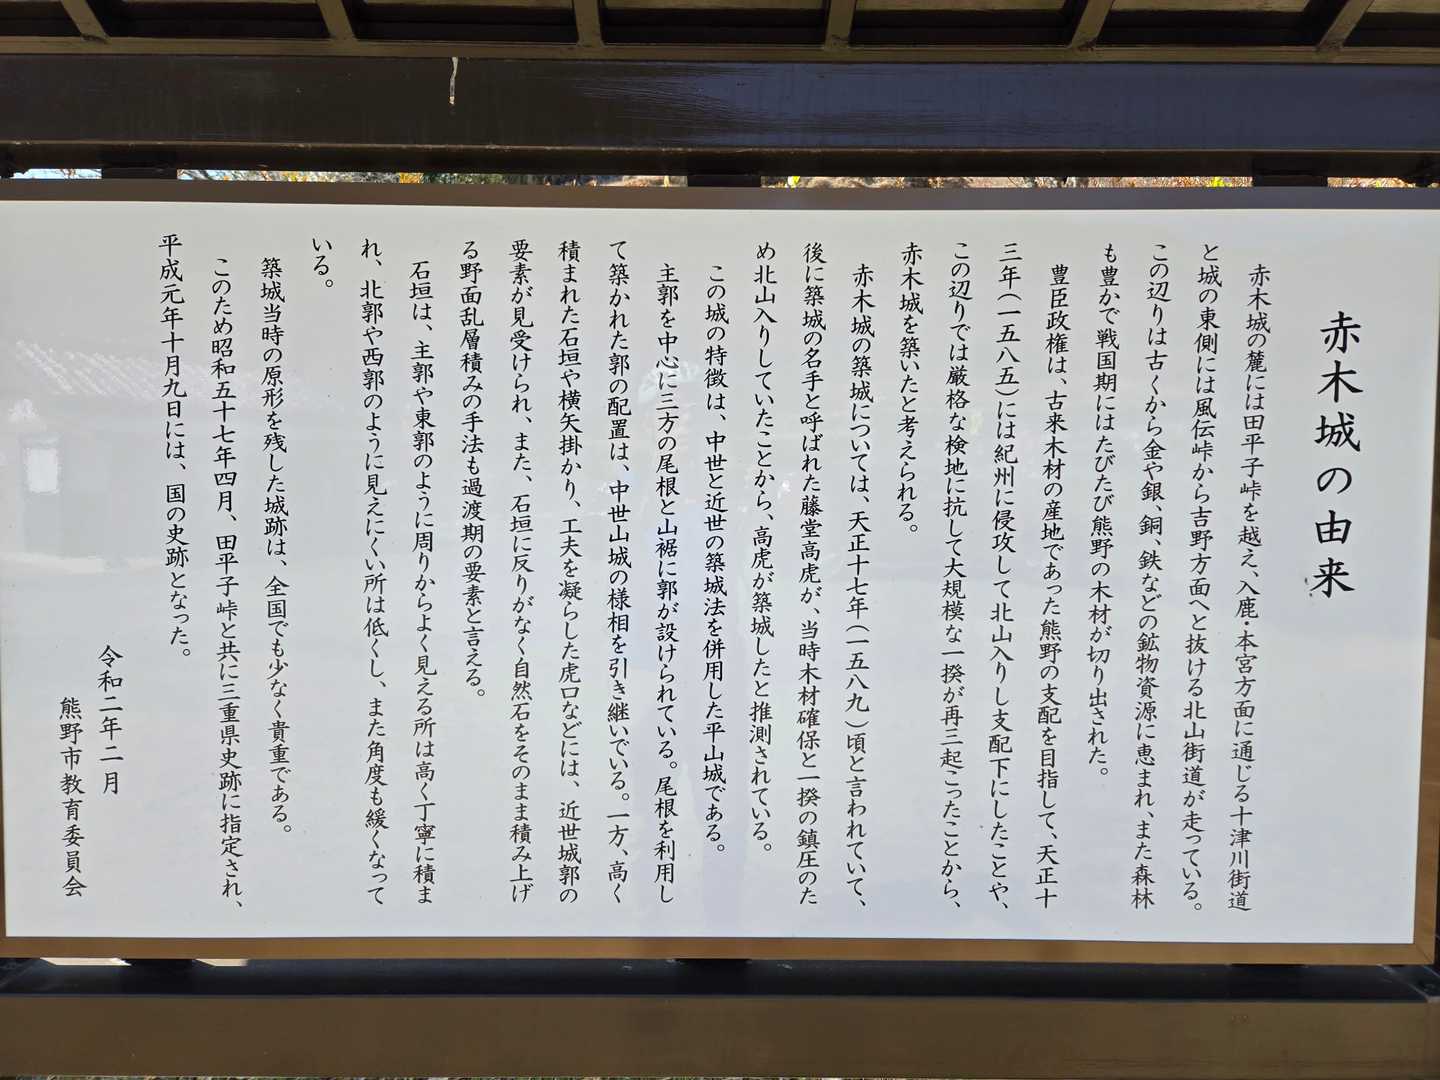 赤木城の由来
赤木城の麓には田平子峠を越え、入鹿・本宮方面に通じる十津川街道
と城の東側には風伝峠から吉野方面へと抜ける北山街道が走っている。
この辺りは古くから金や銀、銅、鉄などの鉱物資源に恵まれ、また森林
も豊かで戦国期にはたびたび熊野の木材が切り出された。
豊臣政権は、古来木材の産地であった熊野の支配を目指して、天正十
三年（一五八五）には紀州に侵攻して北山入りし支配下にしたことや、
この辺りでは厳格な検地に抗して大規模な一揆が再三起こったことから、
赤木城を築いたと考えられる。
赤木城の築城については、天正十七年（一五八九）頃と言われていて、
後に築城の名手と呼ばれた藤堂高虎が、当時木材確保と一揆の鎮圧のた
め北山入りしていたことから、高虎が築城したと推測されている。
この城の特徴は、中世と近世の築城法を併用した平山城である。
主郭を中心に三方の尾根と山裾に郭が設けられている。尾根を利用し
て築かれた郭の配置は、中世山城の様相を引き継いでいる。一方、高く
積まれた石垣や横矢掛かり、工夫を凝らした虎口などには、近世城郭の
要素が見受けられ、また、石垣に反りがなく自然石をそのまま積み上げ
る野面乱層積みの手法も過渡期の要素と言える。
石垣は、主郭や東郭のように周りからよく見える所は高く丁寧に積ま
れ、北郭や西郭のように見えにくい所は低くし、また角度も緩くなって
いる。
築城当時の原形を残した城跡は、全国でも少なく貴重である。
このため昭和五十七年四月、田平子峠と共に三重県史跡に指定され、
平成元年十月九日には、国の史跡となった。
令和二年二月
熊野市教育委員会